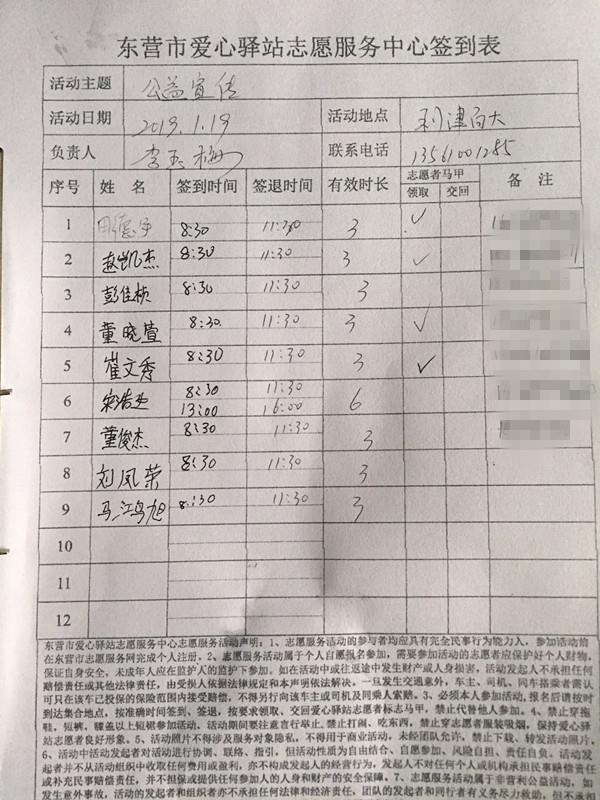 东营市爱心驿站志愿服务中心签到表
活动主题 公益宣传
活动日期 2019.1.19 活动地点 利津百大
负责人 李玉梅 联系电话 13561001285
序号 姓 名 签到时间 签退时间 有效时长 志愿者马甲 备 注
领取 交回
1 田德宇 8:30 11:30 3 ✓
2 赵凯杰 8:30 11:30 3 ✓
3 彭佳桢 8:30 11:30 3
4 董晓萱 8:30. 11:30 3 ✓
5 崔文秀 8:30 11:30 3 ✓
6 宋浩 8:30 11:30 6
13:00 16:00
7 董俊杰 8:30 11:30 3
8 刘凤荣 8:30 11:30 3
9 马江鸿旭 8:30 11:30 3
10
11
12
东营市爱心驿站志愿服务中心志愿服务活动声明：1、志愿服务活动的参与者均应具有完全民事行为能力人，参加活动前
在东营市志愿服务网完成个人注册。2、志愿服务活动属于个人自愿报名参加，需要参加活动的志愿者应保护好个人财物，
保证自身安全。未成年人应在监护人的监护下参加。如在活动中或往返途中发生财产或人身损害，活动发起人不承担任何
赔偿责任或其他法律责任，由受损人依据法律规定和本声明依法解决。一旦发生交通意外，车主、司机、同车搭乘者需认
可只在该车已投保的保险范围内接受赔偿，不得另行向该车主或司机及同乘人索赔。3、必须本人参加活动，报名后请按时
到达集合地点，按准确时间签到、签退，按要求领取、交回爱心驿站志愿者标志马甲，禁止代替他人参加。4、禁止穿拖
鞋，短裤，膝盖以上短裙参加活动。活动期间要注意言行举止，禁止打闹、吃东西，禁止穿志愿者服装吸烟，保持爱心驿
站志愿者良好形象。5、活动照片不得涉及服务对象隐私，不得用于商业活动，未经团队允许，禁止下载、转发活动照片。
6、活动中活动发起者对活动进行协调、联络、指引，但活动性质为自由结合、自愿参加、风险自担、责任自负。活动发
起者并不从活动组织中收取任何费用或盈利，亦不构成发起人的经营行为，发起人不对任何个人或机构承担民事赔偿责任
或补充民事赔偿责任，并不担保或提供任何参加人的人身和财产的安全保障。7、志愿服务活动属于非营利公益活动，如
发生意外事故，活动的发起者和组织者亦不承担任何法律和经济责任，团队的发起者和同行者有义务尽力救助，但不承担